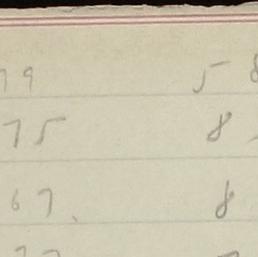 79 58
75 8
67. 8